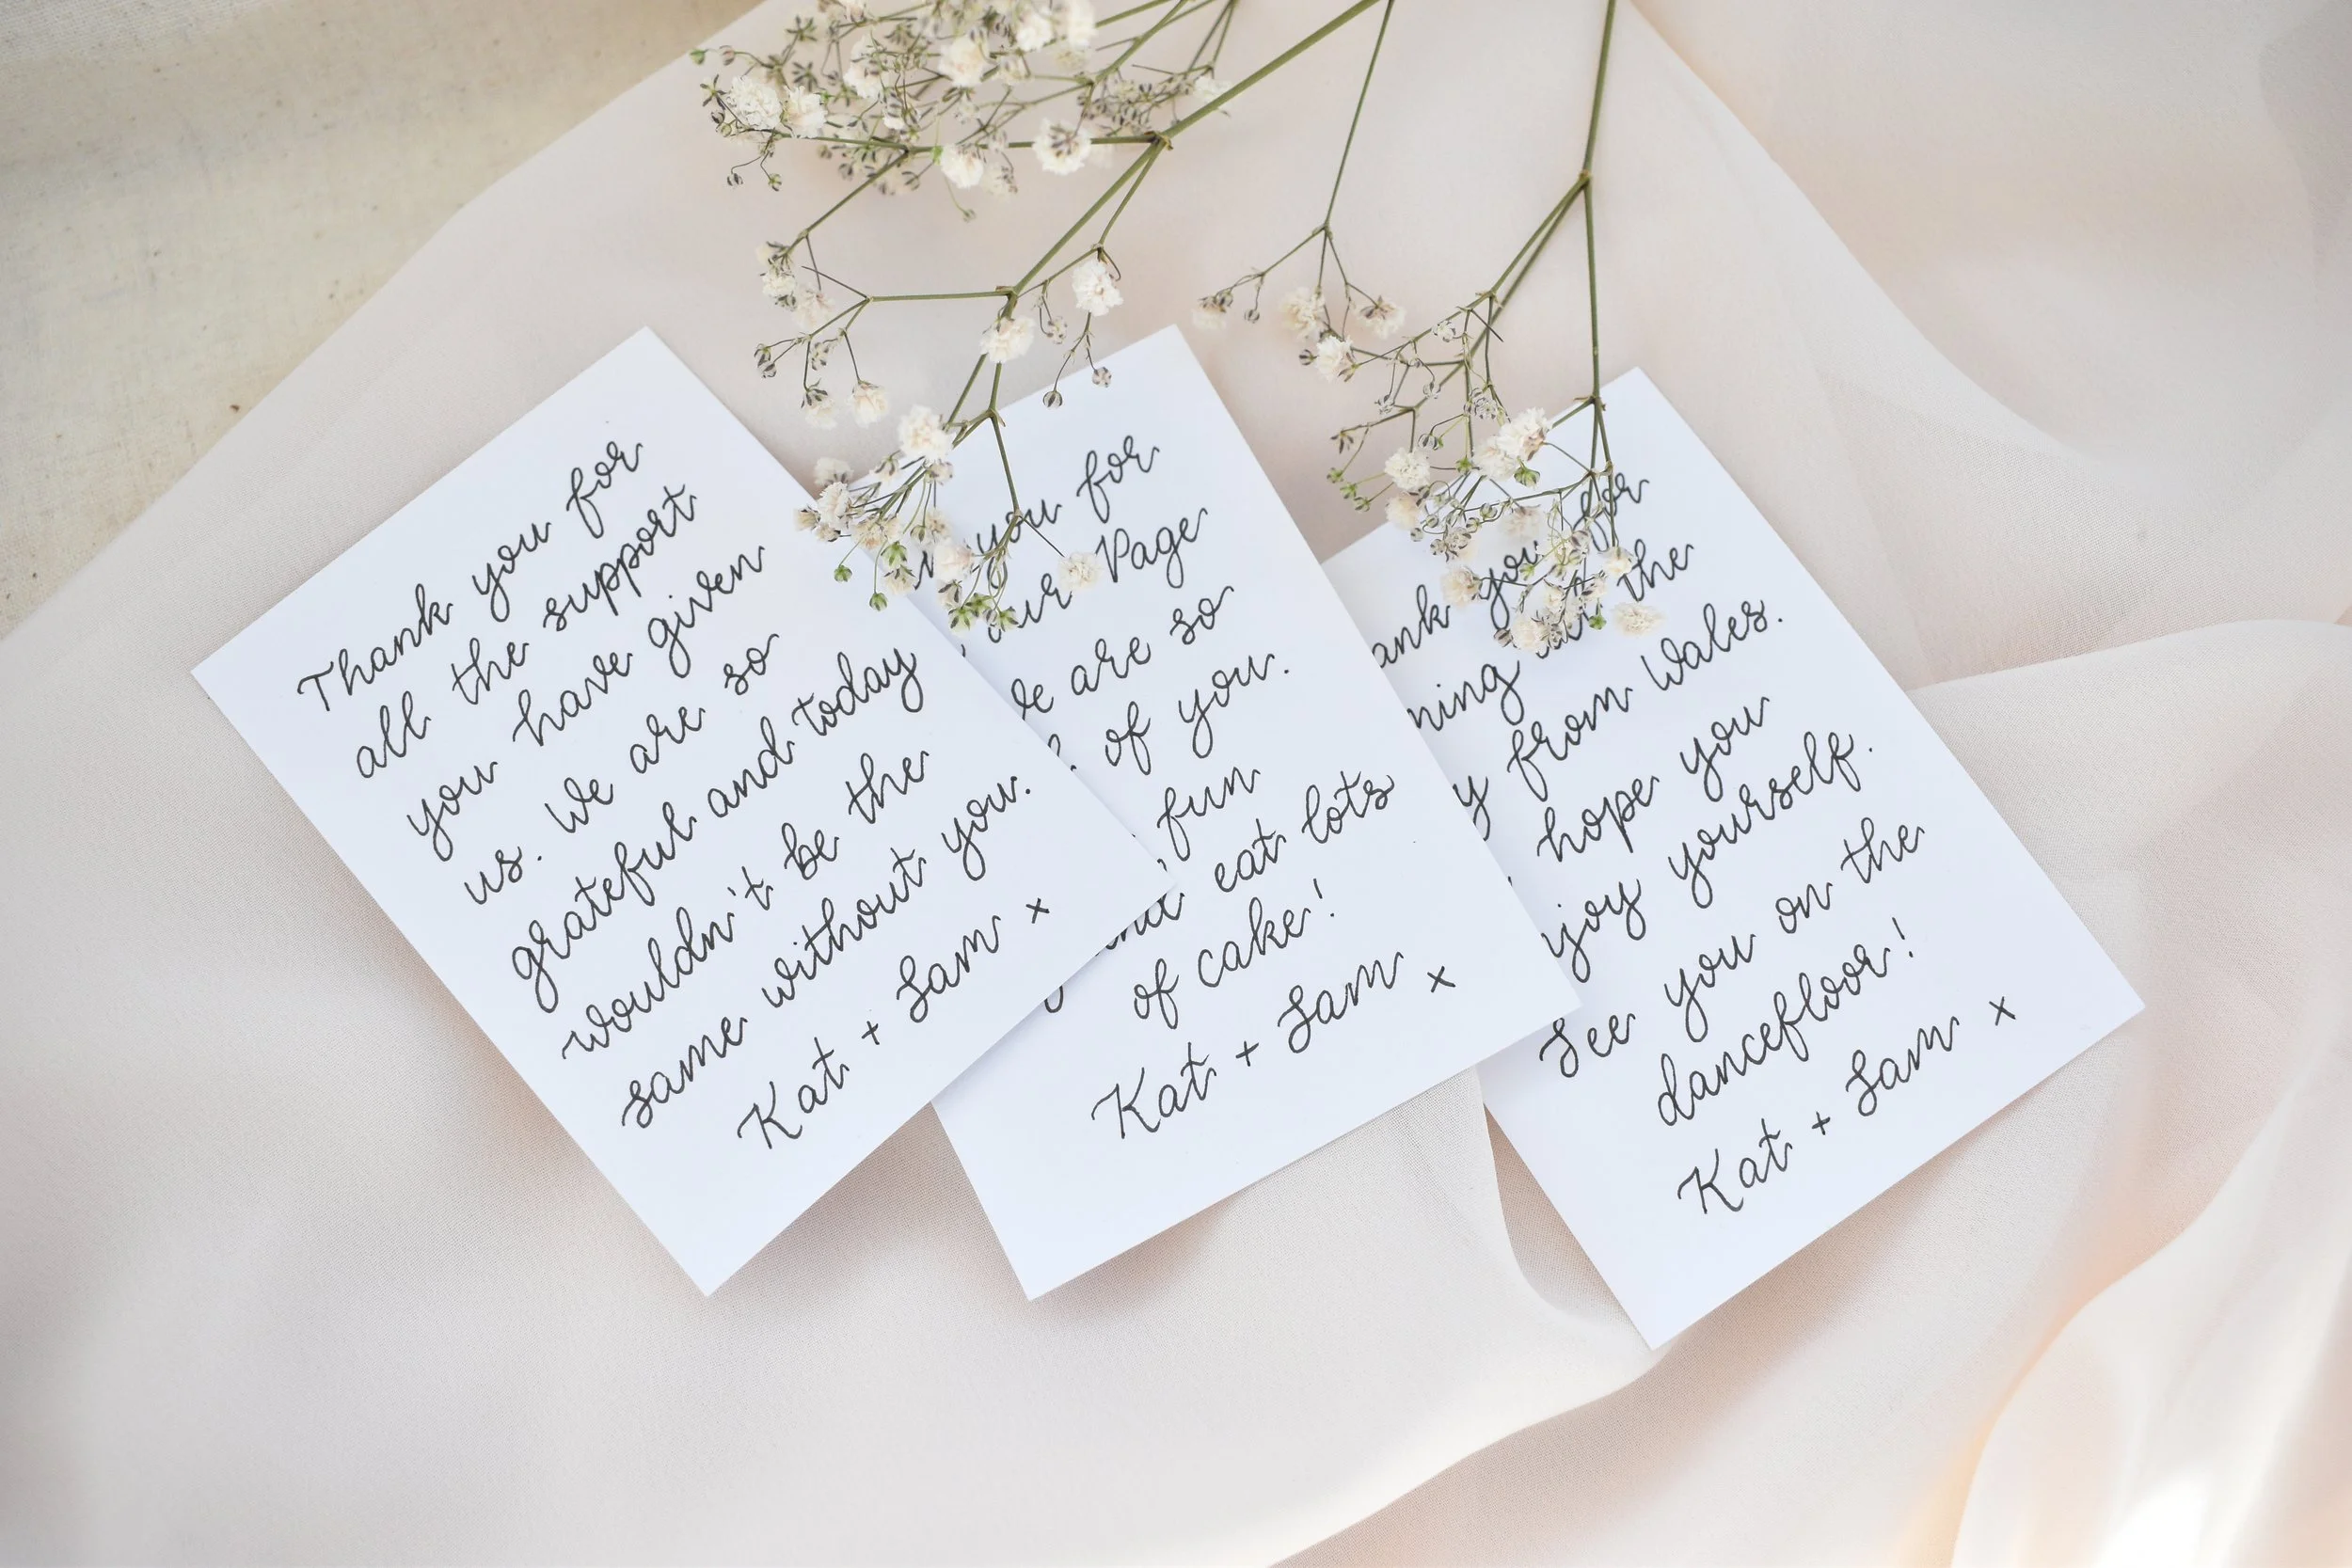 Thank you for
all the support
you have given
us. We are so
grateful and today
wouldn't be the
same without you.
Kat + Sam x
you for
our Page
are so
of you.
fun
and eat lots
of cake!
Kat + Sam x
you for
the
from Wales.
hope you
yourself.
See you on the
dancefloor!
Kat + Sam x